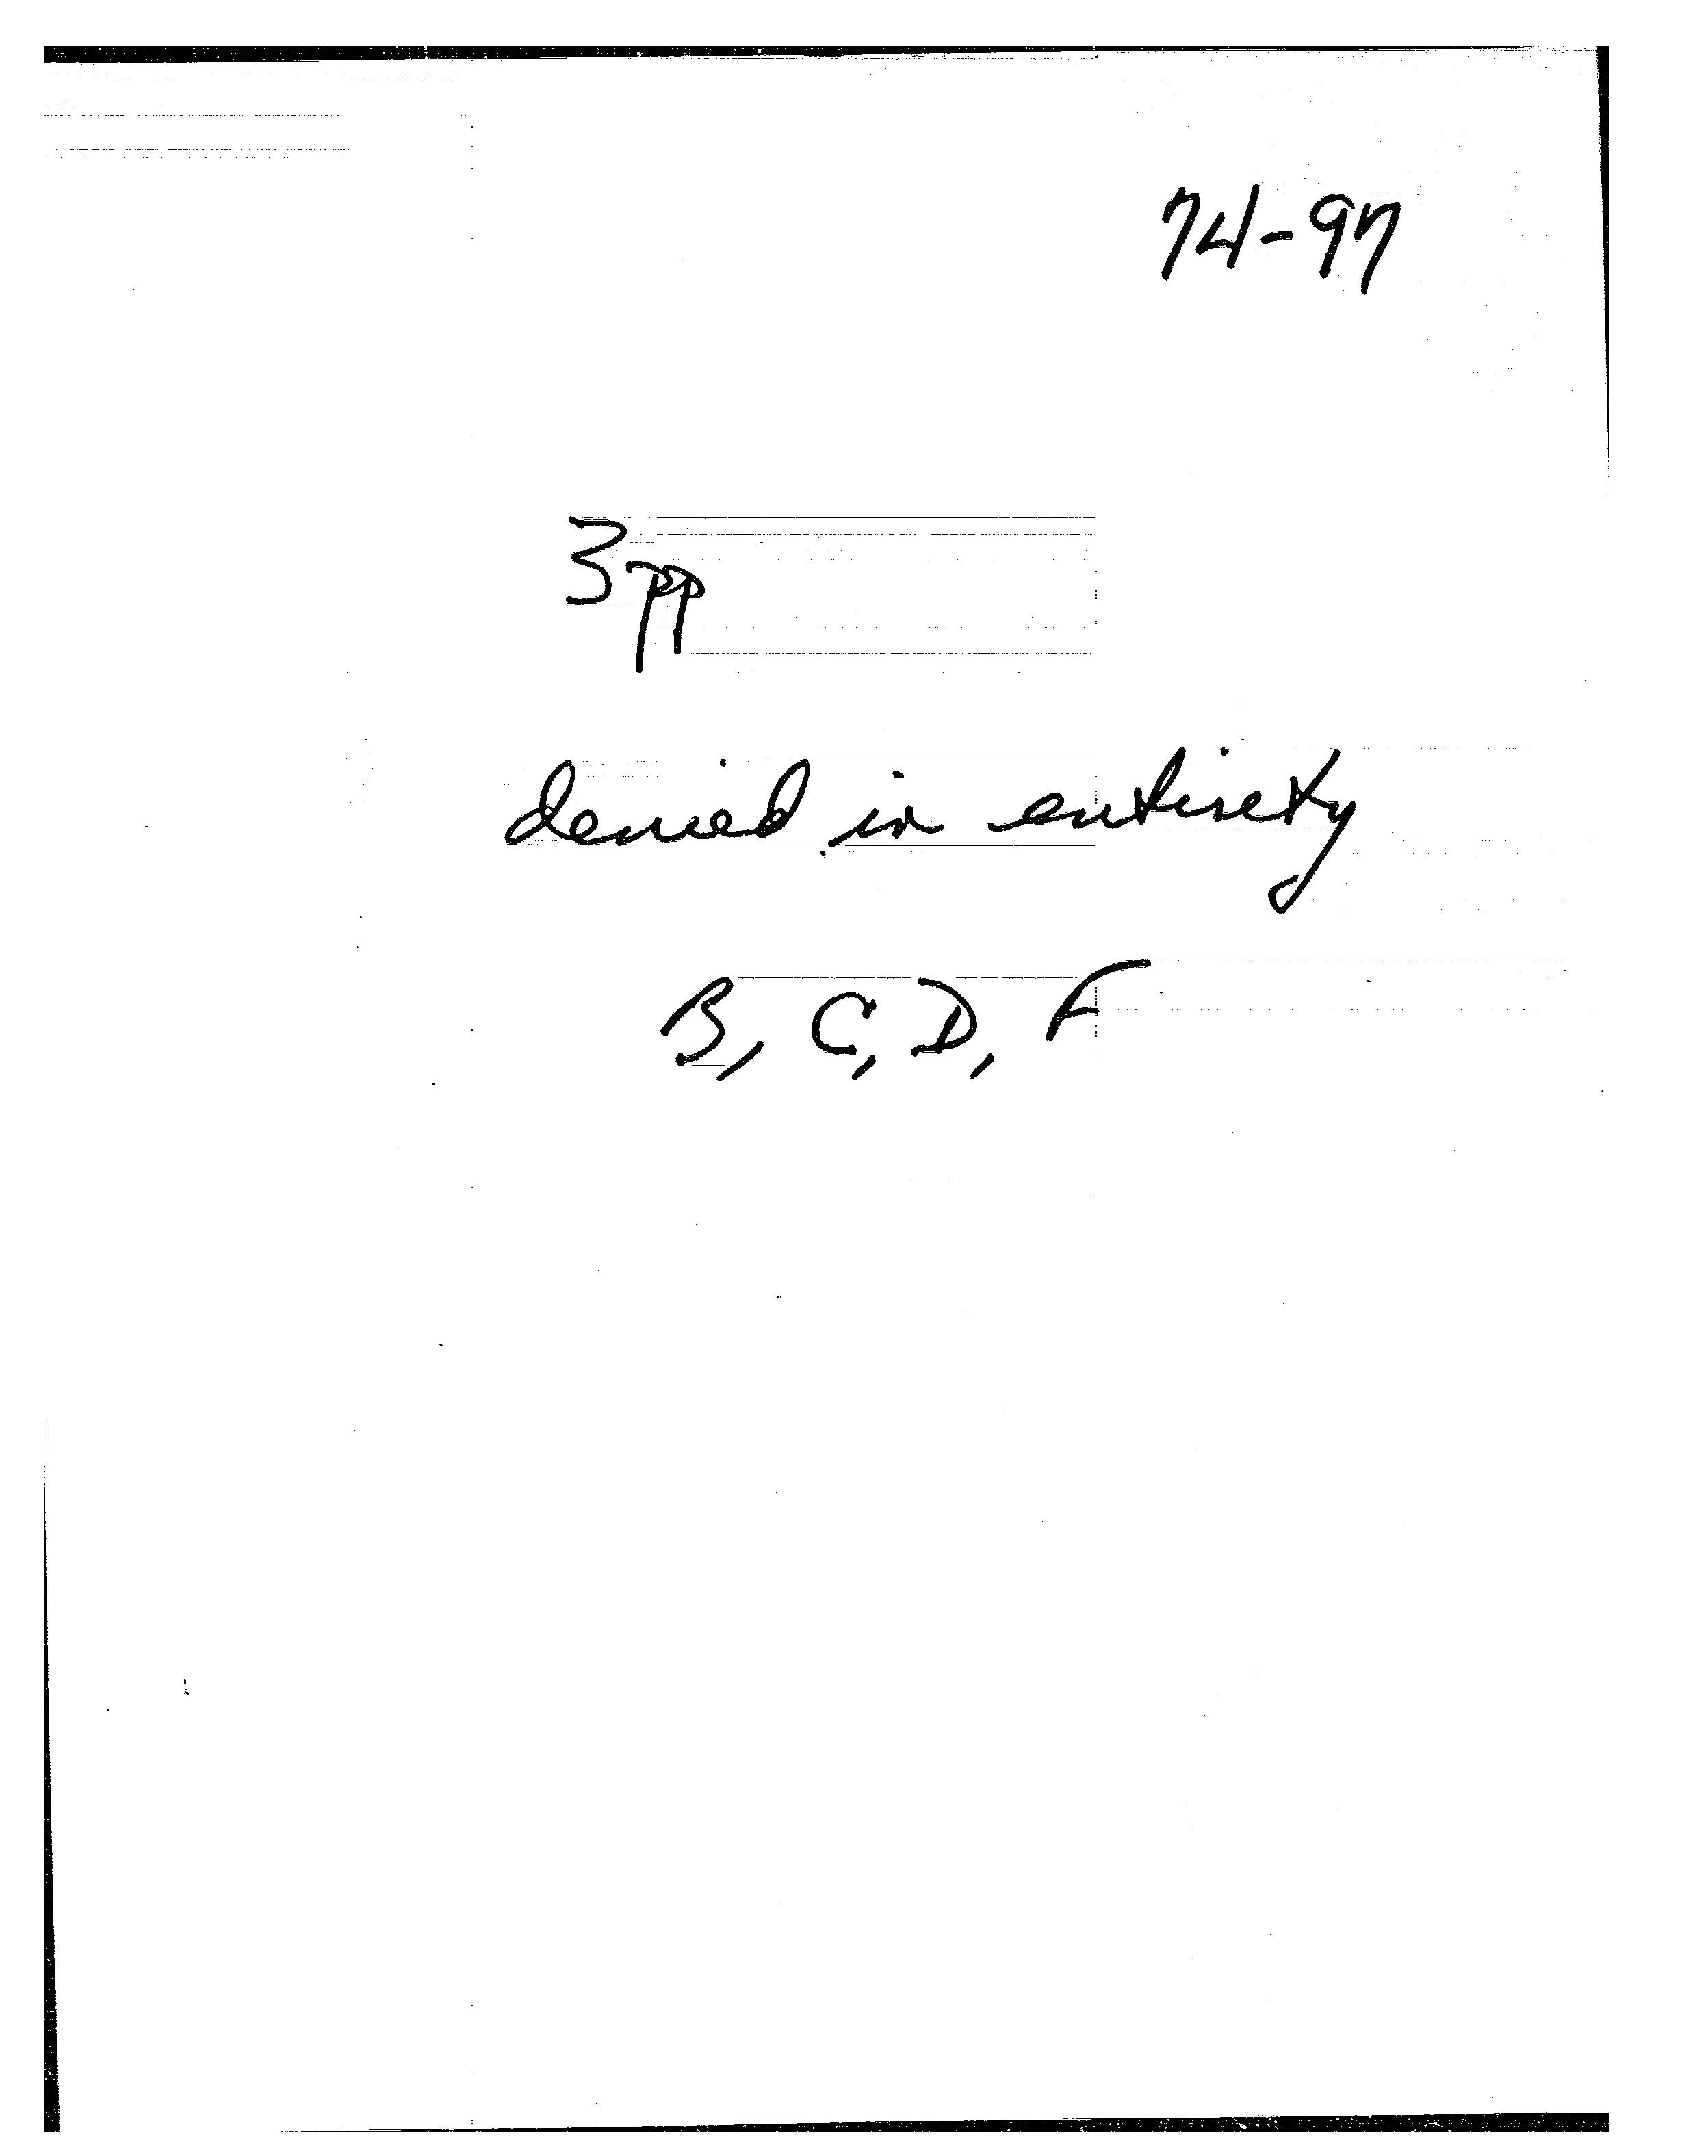 74-97
3pp
denied in entirety
B, C, D, F